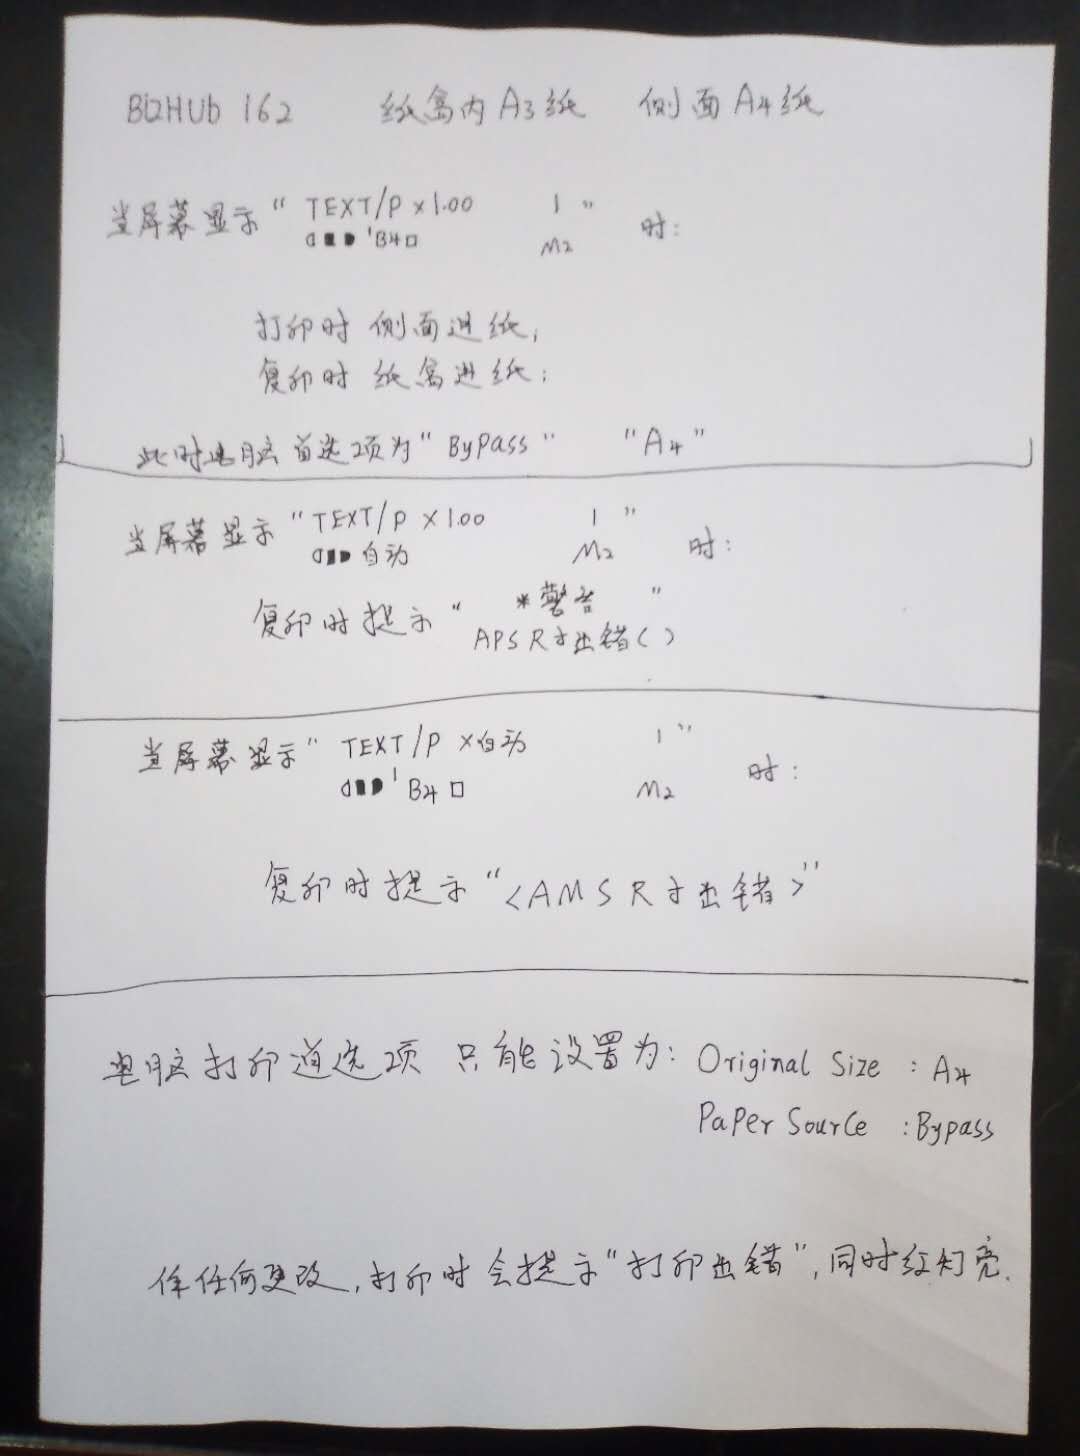 BizHUb 162 纸盒内A3纸 侧面A4纸
当屏幕显示“ TEXT/P ×1.00 1 ” 时:
'B4□ M2
打印时 侧面进纸;
复印时 纸盒进纸;
此时电脑首选项为“ Bypass ” “A4”
当屏幕显示“ TEXT/P ×1.00 1 ” 时:
自动 M2
复印时提示“ *警告 ”
APS R寸出错()
当屏幕显示“ TEXT/P ×自动 1 ” 时:
'B4□ M2
复印时提示“<AMS R寸出错>”
电脑打印首选项 只能设置为: Original Size : A4
Paper Source : Bypass
作任何更改,打印时会提示“打印出错”,同时红灯亮.